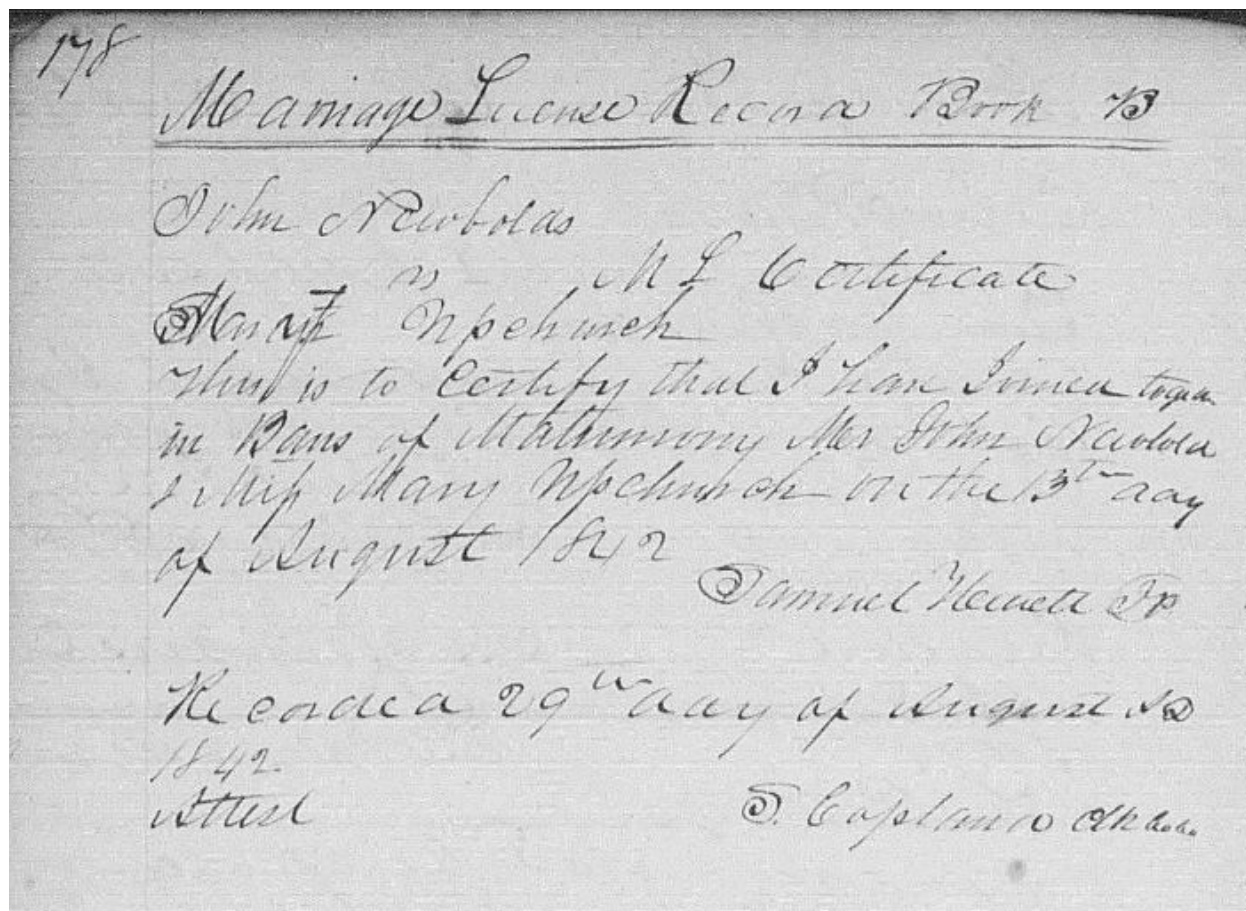 178
Marriage License Record Book B
John Newbolds
vs M L Certificate
Mary Upchurch
This is to Certify that I have Joined
in Bans of Matrimony Mr John Newbold
& Miss Mary Upchurch on the 13th day
of August 1842
Samuel Hewett JP
Recorded 29th day of August AD
1842
Attest
Copland Clk